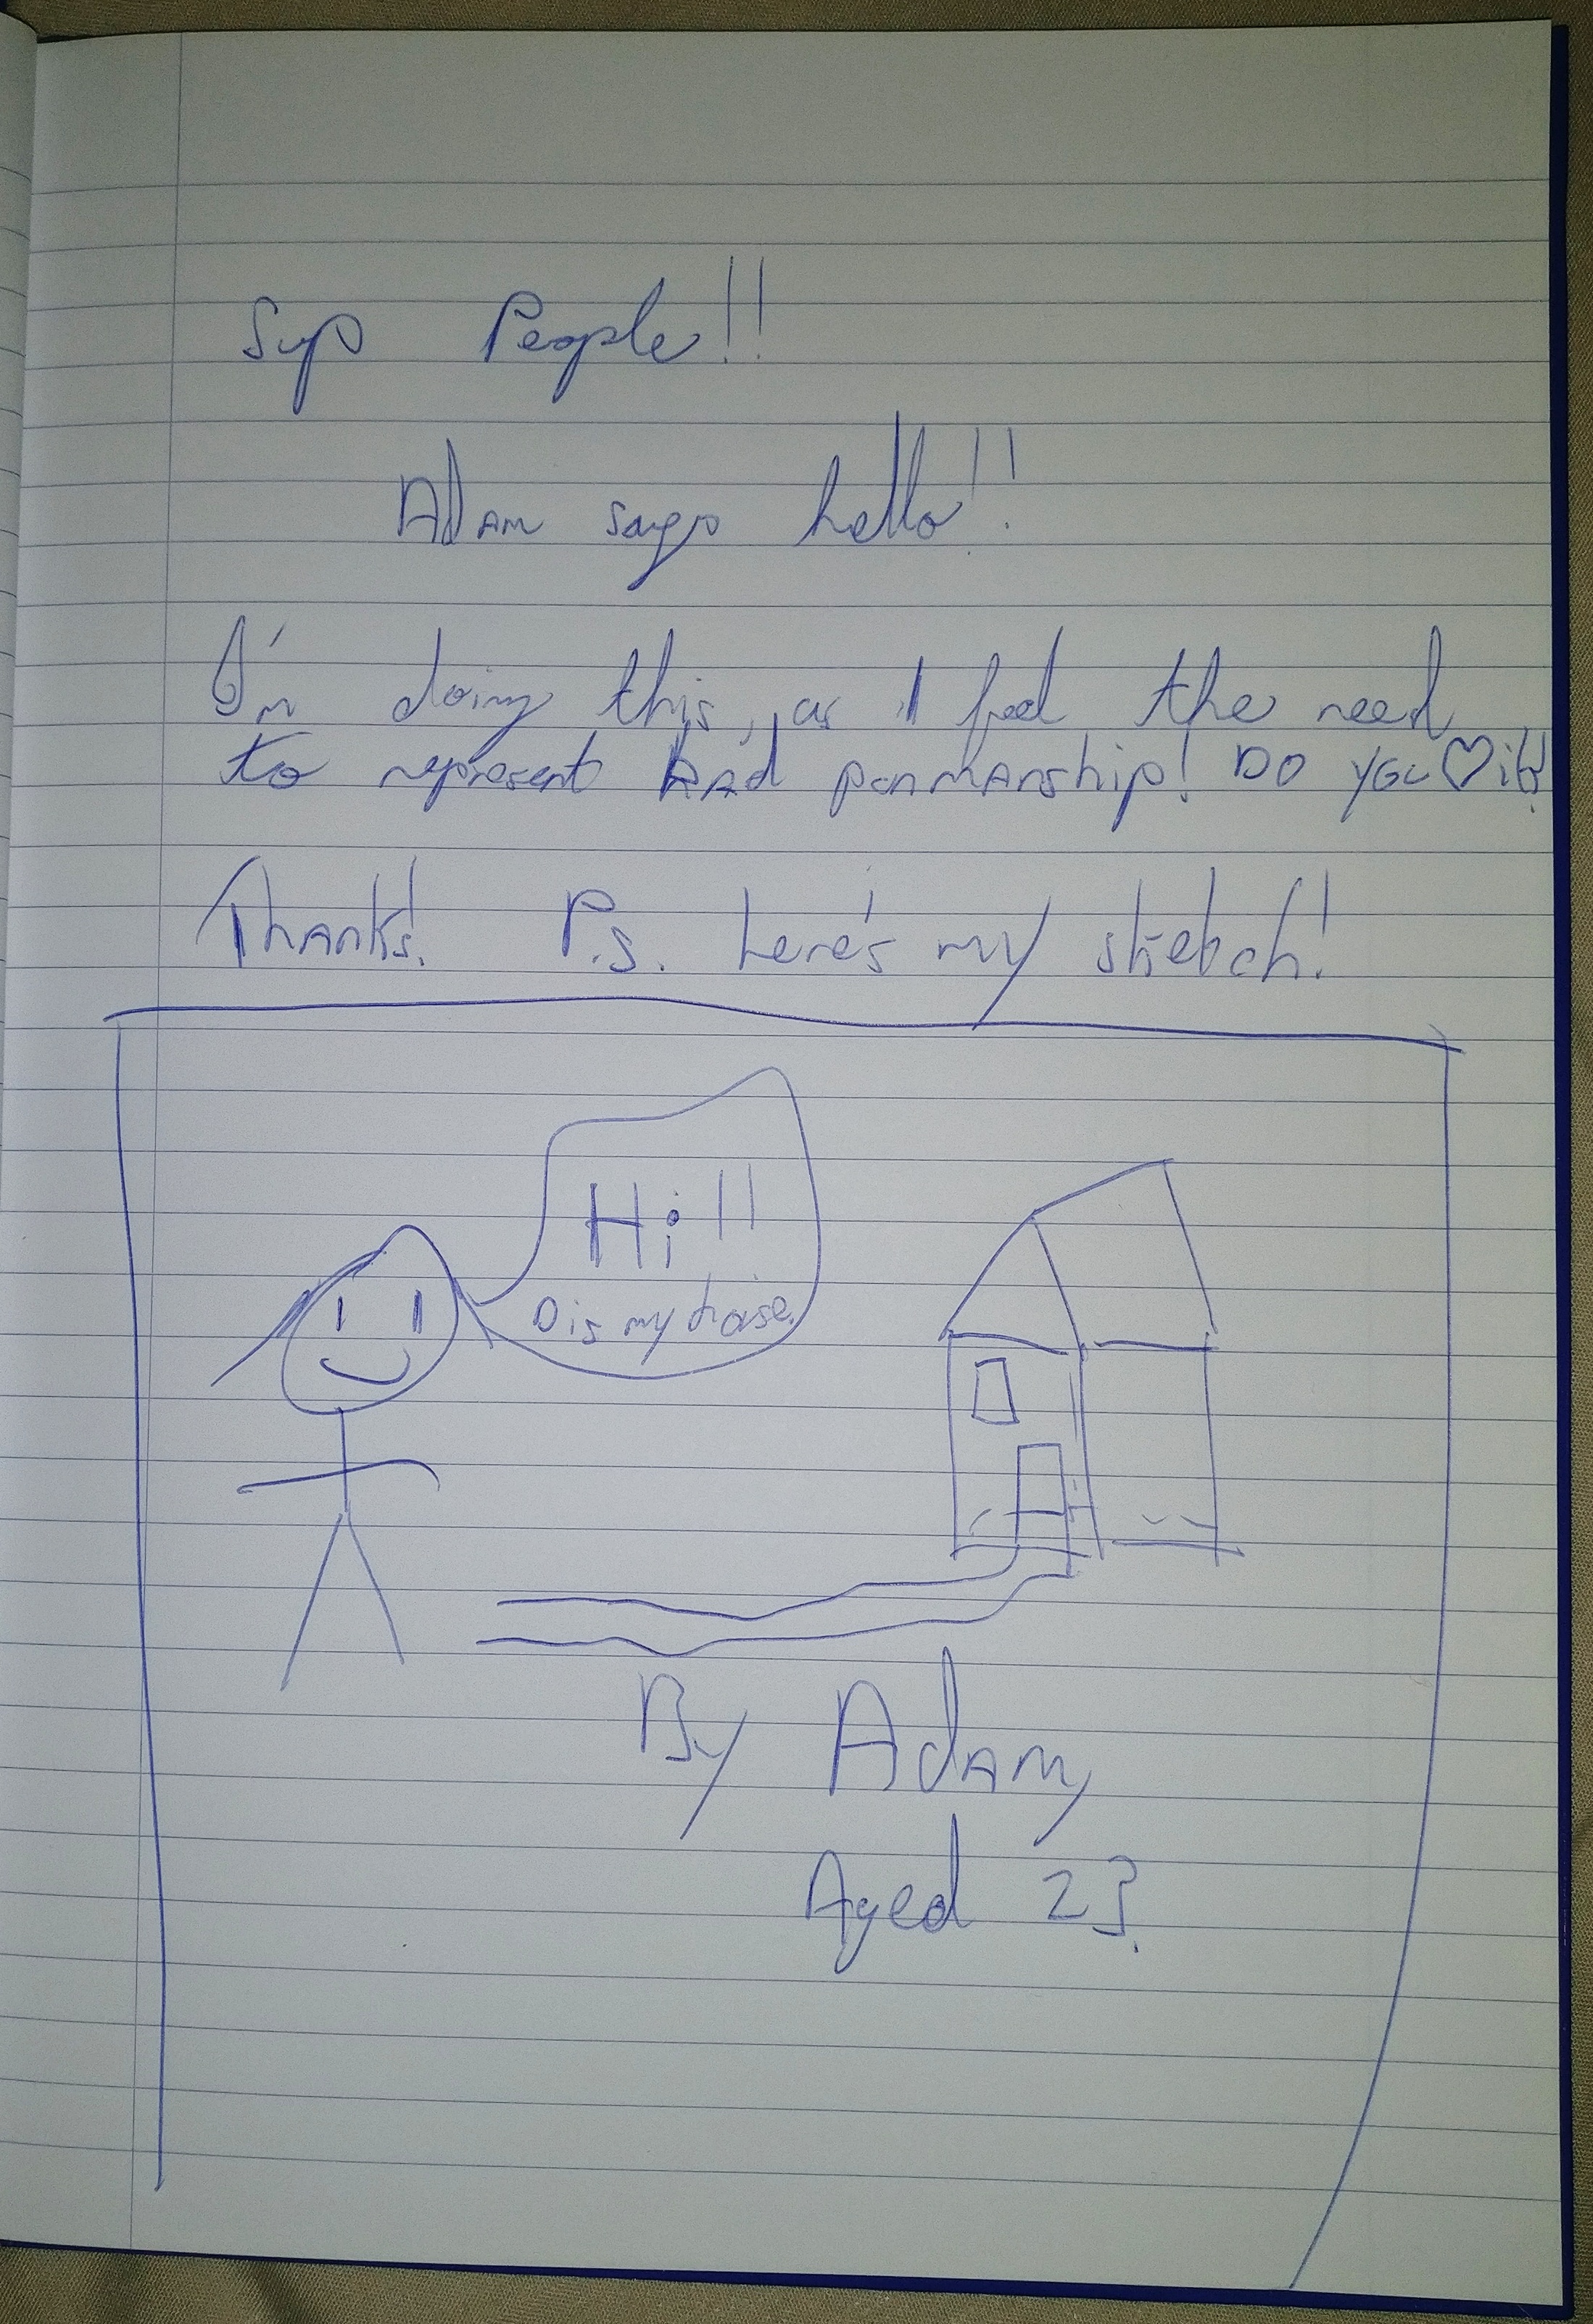 Sup People!!
Adam says hello!!
I'm doing this, as I feel the need
to represent bad penmanship! Do you ♡ it?!
Thanks! P.s. here's my sketch!
Hi!!
Dis my hoise.
By Adam,
Aged 23.